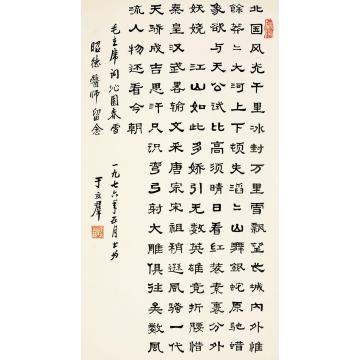 北国风光千里冰封万里雪飘望长城内外惟
餘莽〻大河上下顿失滔〻山舞銀蛇原驰蜡
象欲与天公试比高须晴日看红装素裹分外
妖娆 江山如此多娇引无数英雄竞折腰惜
秦皇汉武略输文采唐宗宋祖稍逊风骚一代
天骄成吉思汗只识弯弓射大雕俱往矣数风
流人物还看今朝
毛主席词沁園春雪 一九七六年五月
昭德醫师留念 于立群